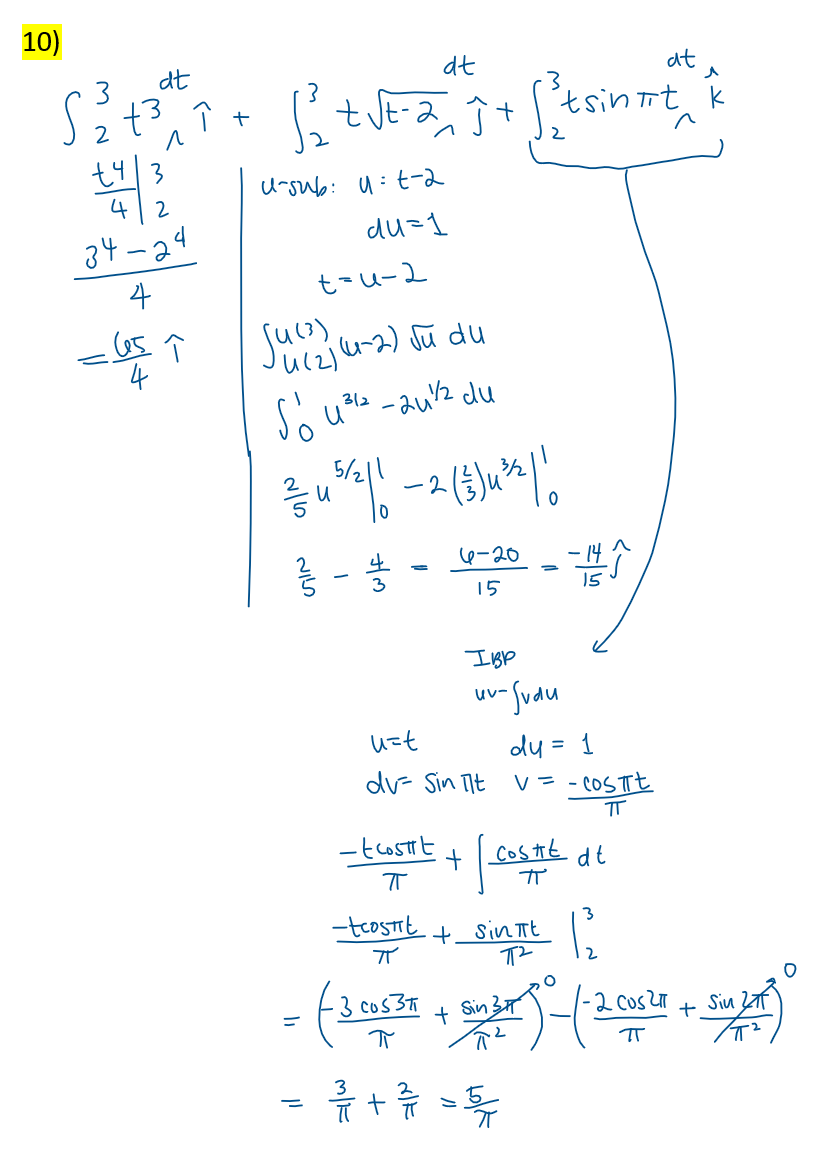 10)
∫₂³ t³ dt î + ∫₂³ t√(t-2) dt ĵ + ∫₂³ t sin πt dt k̂
t⁴/4 |₂³
(3⁴ - 2⁴)/4
= 65/4 î
u-sub: u = t-2
du = 1
t = u-2
∫_{u(2)}^{u(3)} (u-2) √u du
∫₀¹ u^{3/2} - 2u^{1/2} du
2/5 u^{5/2} |₀¹ - 2(2/3)u^{3/2} |₀¹
2/5 - 4/3 = (6-20)/15 = -14/15 ĵ
IBP
uv - ∫vdu
u=t du = 1
dv= sin πt v = -cos πt/π
-tcosπt/π + ∫ cosπt/π dt
-tcosπt/π + sin πt/π² |₂³
= (-3 cos3π/π + sin3π/π²)⁰ - (-2 cos2π/π + sin 2π/π²)⁰
= 3/π + 2/π = 5/π